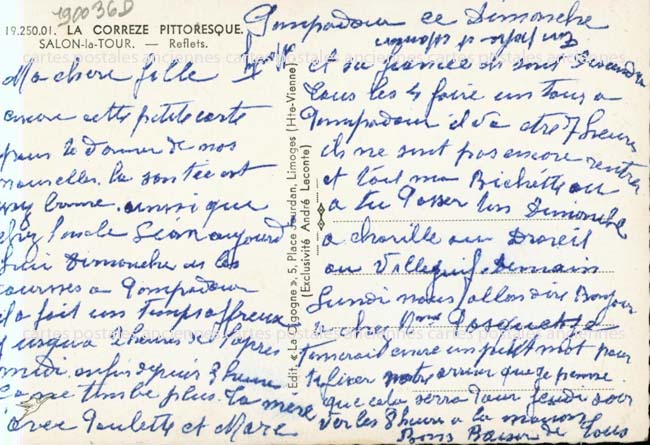 190036D
19.250.01. LA CORREZE PITTORESQUE.
SALON-la-TOUR. — Reflets.
Ma chere fille
encore cette petite carte
pour te donner de nos
nouvelles. la santée est
bonne. ainsi que
chez l'oncle Léon aujourd
hui Dimanche et les
courses a Pompadour
il a fait un temps affreux
jusqu'a 2 heures de l'apres
midi. enfin depuis 3 heures
ça ne tombe plus. la mère
avec Paulette et Marc
Edit. « La Cigogne », 5, Place Jourdan, Limoges (Hte-Vienne)
(Exclusivité André Leconte)
Pompadour ce Dimanche
et sa fiancée ils sont
tous les 4 faire un tour a
Pompadour il va etre 7 heures
ils ne sont pas encore rentrés
et toi ma Bichette ou
a tu passer ton Dimanche
a choville ou Draveil
ou Villejuif. Demain
Lundi nous allons dire Bonjour
a chez Mme
encore un petit mot pour
notre arrivé que je pense
que cela serra pour jeudi soir
vers les 8 heures a la maison
Bons Baiser de tous
cartes postales anciennes